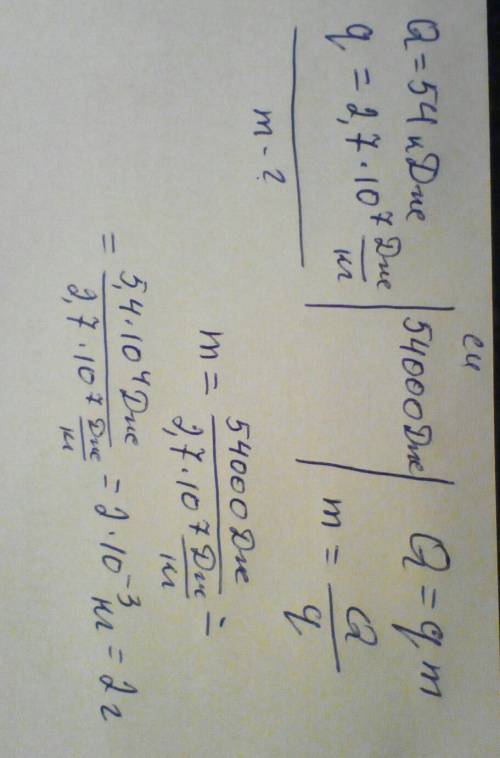 Q = 54 кДж
q = 2,7·10⁷ Дж/кг
m - ?
си
54000Дж
Q = qm
m = Q/q
m = 54000Дж / 2,7·10⁷ Дж/кг =
= 5,4·10⁴ Дж / 2,7·10⁷ Дж/кг = 2·10⁻³ кг = 2 г